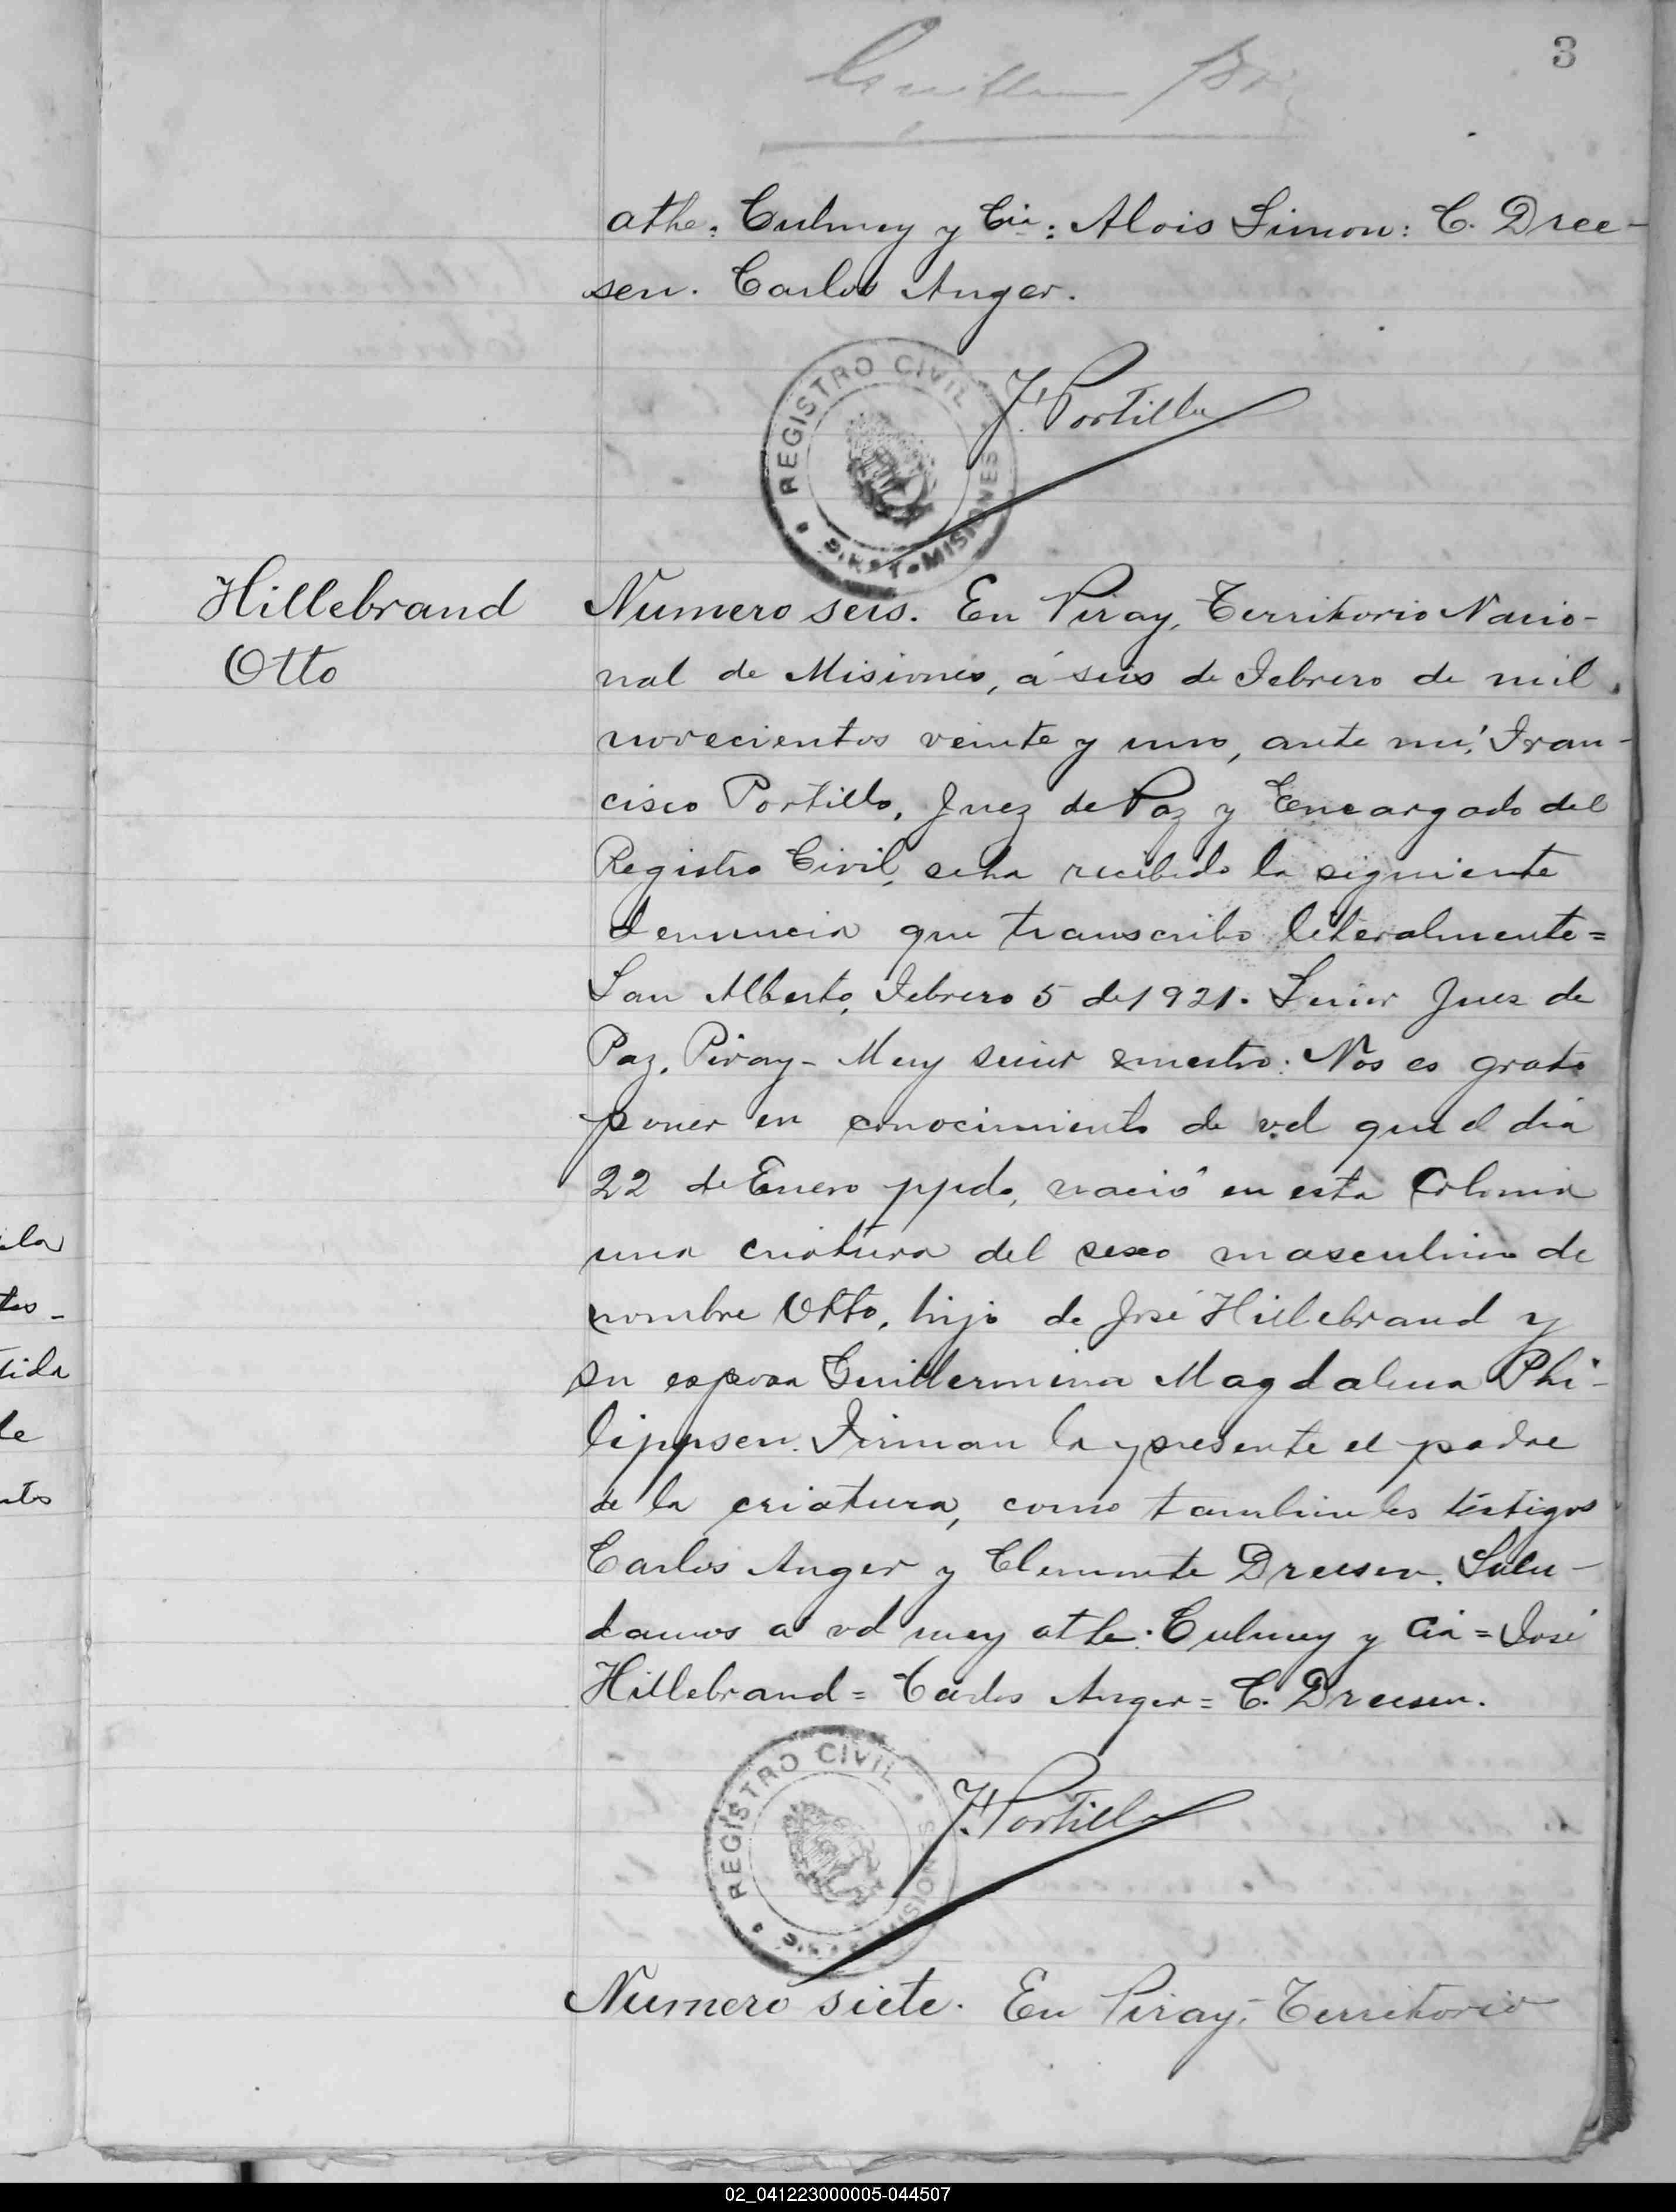 3
athe: Culmey y Cia: Alois Simon: C. Dree-
sen. Carlos Anger.
REGISTRO CIVIL
MISIONES
F. Portillo
Hillebrand
Otto
Numero seis. En Piray, Territorio Nacio-
nal de Misiones, á seis de Febrero de mil
novecientos veinte y uno, ante mí, Fran-
cisco Portillo, Juez de Paz y Encargado del
Registro Civil, se ha recibido la siguiente
denuncia que transcribo literalmente=
San Alberto, Febrero 5 de 1921. Señor Juez de
Paz, Piray- Muy señor nuestro: Nos es grato
poner en conocimiento de vd que el dia
22 de Enero ppdo, nació en esta Colonia
una criatura del sexo masculino de
nombre Otto, hijo de José Hillebrand y
su esposa Guillermina Magdalena Phi-
lippsen. Firman la presente el padre
de la criatura, como tambien los testigos
Carlos Anger y Clemente Dreesen. Salu-
damos a vd muy athe: Culmey y Cia = José
Hillebrand = Carlos Anger = C. Dreesen.
REGISTRO CIVIL
MISIONES
F. Portillo
Numero siete. En Piray, Territorio
ila
tos-
tida
le
nto
02_041223000005-044507